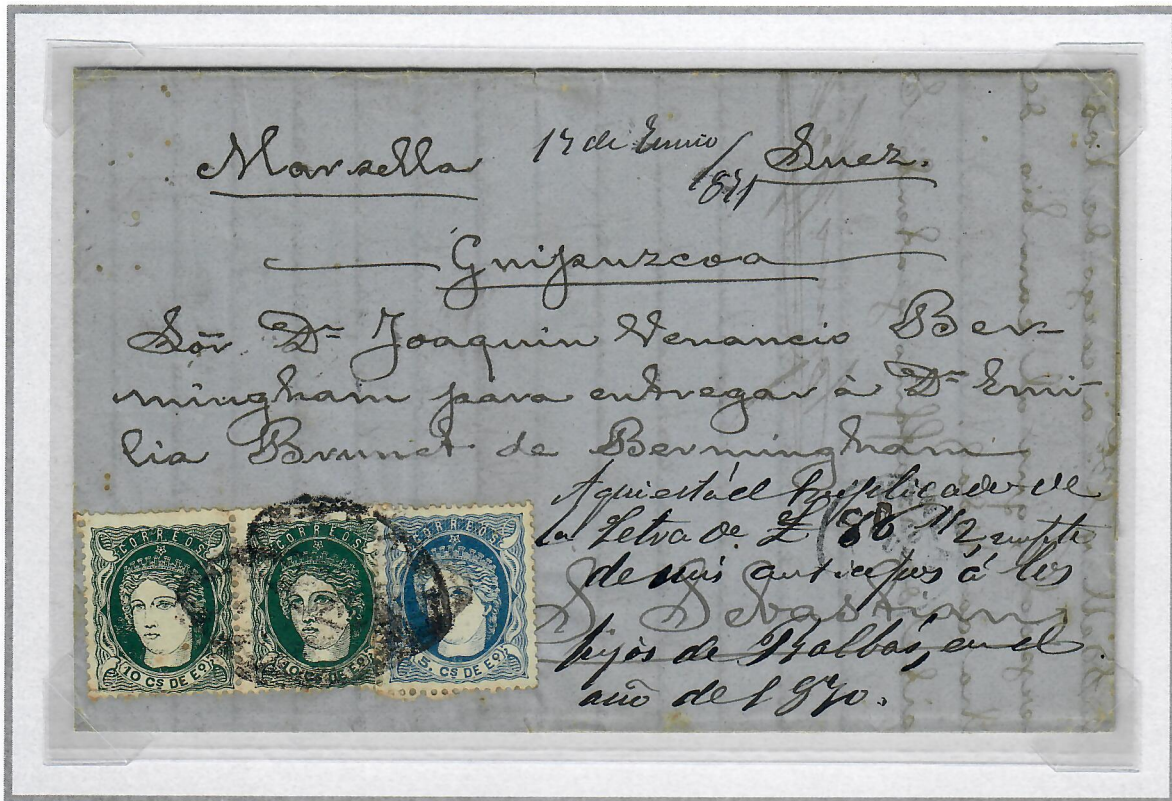 Marsella 17 de Enero /871 Suez.
Guipuzcoa
Sōr Dn Joaquin Venancio Ber-
mingham para entregar à Da Emi-
lia Brunet de Bermingham
Aqui està el de
la Letra de £ 88 1/2
de mis anticipos á los
S Sebastian
hijos de Balbas, en el
año de 1870.
CORREOS CORREOS CORREOS
10 CS DE EO. 10 CS DE EO. 5 CS DE EO.